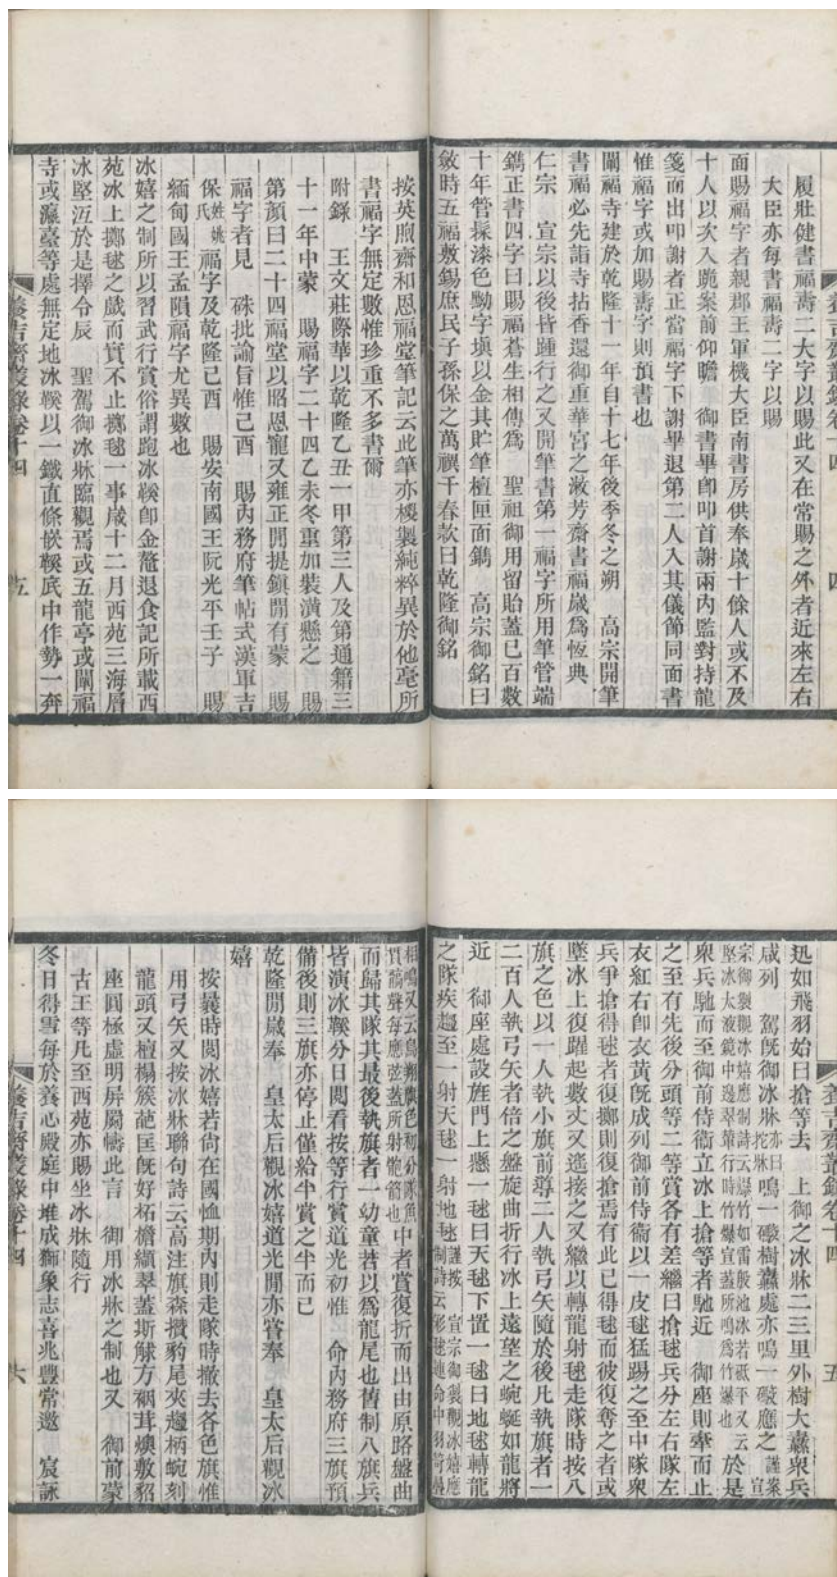 養吉齋叢錄卷十四
四
履壯健書福壽二大字以賜此又在常賜之外者近來左右
大臣亦每書福壽二字以賜
面賜福字者親郡王軍機大臣南書房供奉歲十餘人或不及
十人以次入跪案前仰瞻 御書畢卽叩首謝兩內監對持龍
箋而出叩謝者正當福字下謝畢退第二人入其儀節同面書
惟福字或加賜壽字則預書也
闡福寺建於乾隆十一年自十七年後季冬之朔 高宗開筆
書福必先詣寺拈香還御重華宮之漱芳齋書福歲爲恆典
仁宗 宣宗以後皆踵行之又開筆書第一福字所用筆管端
鐫正書四字曰賜福蒼生相傳爲 聖祖御用留貽蓋已百數
十年管髹漆色黝字塡以金其貯筆檀匣面鐫 高宗御銘曰
斂時五福敷錫庶民子孫保之萬禩千春款曰乾隆御銘
按英煦齋和恩福堂筆記云此筆亦椶製純粹異於他毫所
書福字無定數惟珍重不多書爾
附錄 王文莊際華以乾隆乙丑一甲第三人及第通籍三
十一年中蒙 賜福字二十四乙未冬重加裝潢懸之 賜
第顏曰二十四福堂以昭恩寵又雍正開提鎮閒有蒙 賜
福字者見 硃批諭旨惟己酉 賜內務府筆帖式漢軍吉
保姓姚氏福字及乾隆己酉 賜安南國王阮光平壬子 賜
緬甸國王孟隕福字尤異數也
冰嬉之制所以習武行賞俗謂跑冰鞵卽金鼇退食記所載西
苑冰上擲毬之戲而實不止擲毬一事歲十二月西苑三海層
冰堅沍於是擇令辰 聖駕御冰牀臨觀焉或五龍亭或闡福
寺或瀛臺等處無定地冰鞵以一鐵直條嵌鞵底中作勢一奔
養吉齋叢錄卷十四
五
養吉齋叢錄卷十四
五
迅如飛羽始曰搶等去 上御之冰牀二三里外樹大纛衆兵
咸列 駕旣御冰牀亦曰拕牀鳴一礮樹纛處亦鳴一礮應之謹案宣
宗御製觀冰嬉應制詩云爆竹如雷殷池冰若砥平又云
堅冰太液鏡中邊翠輦行時竹爆宣蓋所鳴爲竹爆也於是
衆兵馳而至御前侍衞立冰上搶等者馳近 御座則牽而止
之至有先後分頭等二等賞各有差繼曰搶毬兵分左右隊左
衣紅右卽衣黃旣成列御前侍衞以一皮毬猛踢之至中隊衆
兵爭搶得毬者復擲則復搶焉有此已得毬而彼復奪之者或
墜冰上復躍起數丈又遙接之又繼以轉龍射毬走隊時按八
旗之色以一人執小旗前導二人執弓矢隨於後凡執旗者一
二百人執弓矢者倍之盤旋曲折行冰上遠望之蜿蜒如龍將
近 御座處設旌門上懸一毬曰天毬下置一毬曰地毬轉龍
之隊疾趨至一射天毬一射地毬謹按 宣宗御製觀冰嬉應制詩云彩毬連命中羽笴疊
相鳴又云鳥翔旗色初分隊魚
貫髇聲每應弦蓋所射骲箭也中者賞復折而出由原路盤曲
而歸其隊其最後執旗者一幼童若以爲龍尾也舊制八旗兵
皆演冰鞵分日閱看按等行賞道光初惟 命內務府三旗預
備後則三旗亦停止僅給半賞之半而已
乾隆閒歲奉 皇太后觀冰嬉道光閒亦嘗奉 皇太后觀冰
嬉
按曩時閱冰嬉若尙在國恤期內則走隊時撤去各色旗惟
用弓矢又按冰牀聯句詩云高注旗森攢豹尾夾趨柄蜿刻
龍頭又檀榻簇葩匡旣好柘檐纈翠蓋斯觩方裀茸燠敷貂
座圓極虛明屛罽幬此言 御用冰牀之制也又 御前蒙
古王等凡至西苑亦賜坐冰牀隨行
冬日得雪每於養心殿庭中堆成獅象志喜兆豐常邀 宸詠
養吉齋叢錄卷十四
六